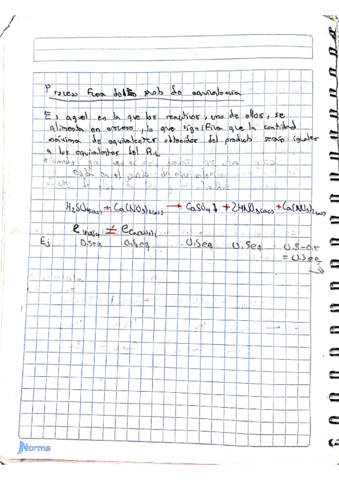 Proceso fuera del punto de equivalencia
Es aquel en la que los reactivos, uno de ellos, se
alimenta en exceso, lo que significa que la cantidad
máxima de equivalentes obtenidos del producto serán iguales
a los equivalentes del R.L
H₂SO₄(ac) + Ca(NO₃)₂(ac) → CaSO₄↓ + 2HNO₃(ac) + Ca(NO₃)₂(ac)
e H₂SO₄ ≠ e Ca(NO₃)₂
Ej 0.5eq 0.8eq 0.5eq 0.5eq 0.8-0.5
= 0.3eq
Norma